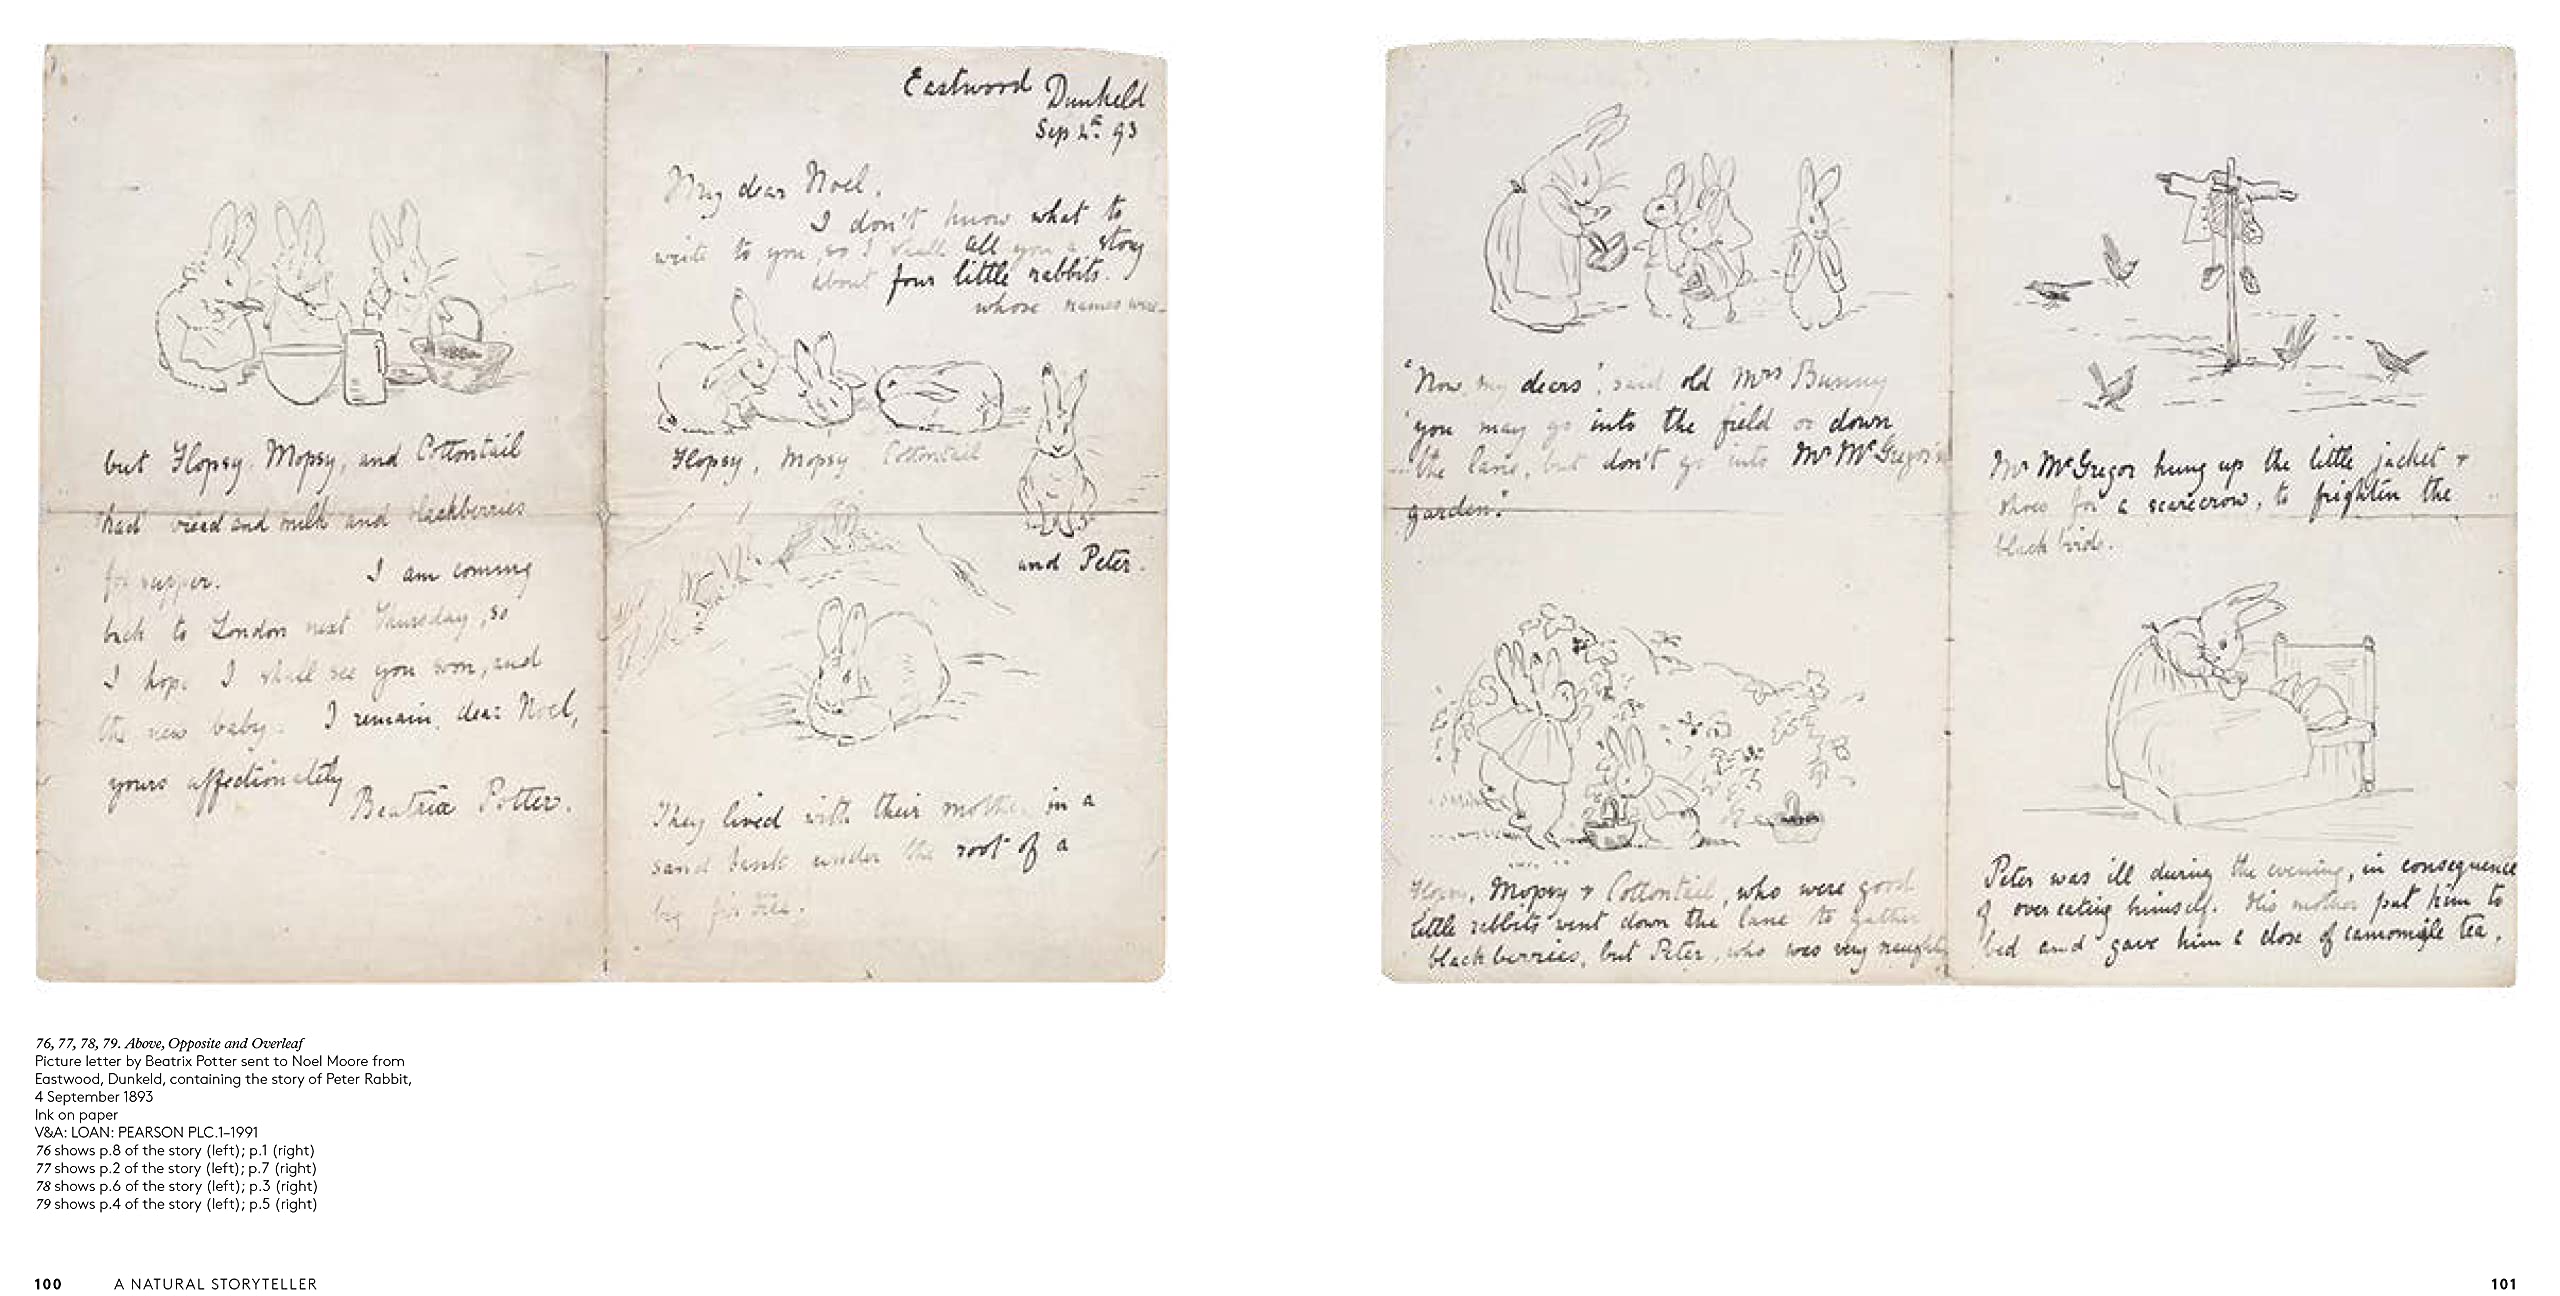 but Flopsy, Mopsy, and Cottontail
had bread and milk and blackberries
for supper. I am coming
back to London next Thursday, so
I hope I shall see you soon, and
the new baby. I remain, dear Noel,
yours affectionately
Beatrix Potter.
Eastwood
Dunkeld
Sep 4th 93
My dear Noel,
I don't know what to
write to you, so I shall tell you a story
about four little rabbits.
whose names were
Flopsy, Mopsy Cottontail
and Peter.
They lived with their mother in a
sand bank under the root of a
big fir tree.
"Now, my dears", said old Mrs Bunny
"you may go into the field or down
the lane, but don't go into Mr McGregor's
garden."
Flopsy, Mopsy & Cottontail, who were good
little rabbits went down the lane to gather
blackberries, but Peter, who was very naughty
Mr McGregor hung up the little jacket &
shoes for a scarecrow, to frighten the
black birds.
Peter was ill during the evening, in consequence
of over eating himself. His mother put him to
bed and gave him a dose of camomile tea,
76, 77, 78, 79. Above, Opposite and Overleaf
Picture letter by Beatrix Potter sent to Noel Moore from
Eastwood, Dunkeld, containing the story of Peter Rabbit,
4 September 1893
Ink on paper
V&A: LOAN: PEARSON PLC.1–1991
76 shows p.8 of the story (left); p.1 (right)
77 shows p.2 of the story (left); p.7 (right)
78 shows p.6 of the story (left); p.3 (right)
79 shows p.4 of the story (left); p.5 (right)
100 A NATURAL STORYTELLER
101